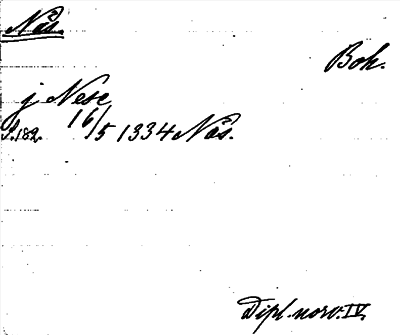 Näs.
Boh.
j Nese
S. 182. 16/5 1334 Näs.
Dipl. norv. IV.